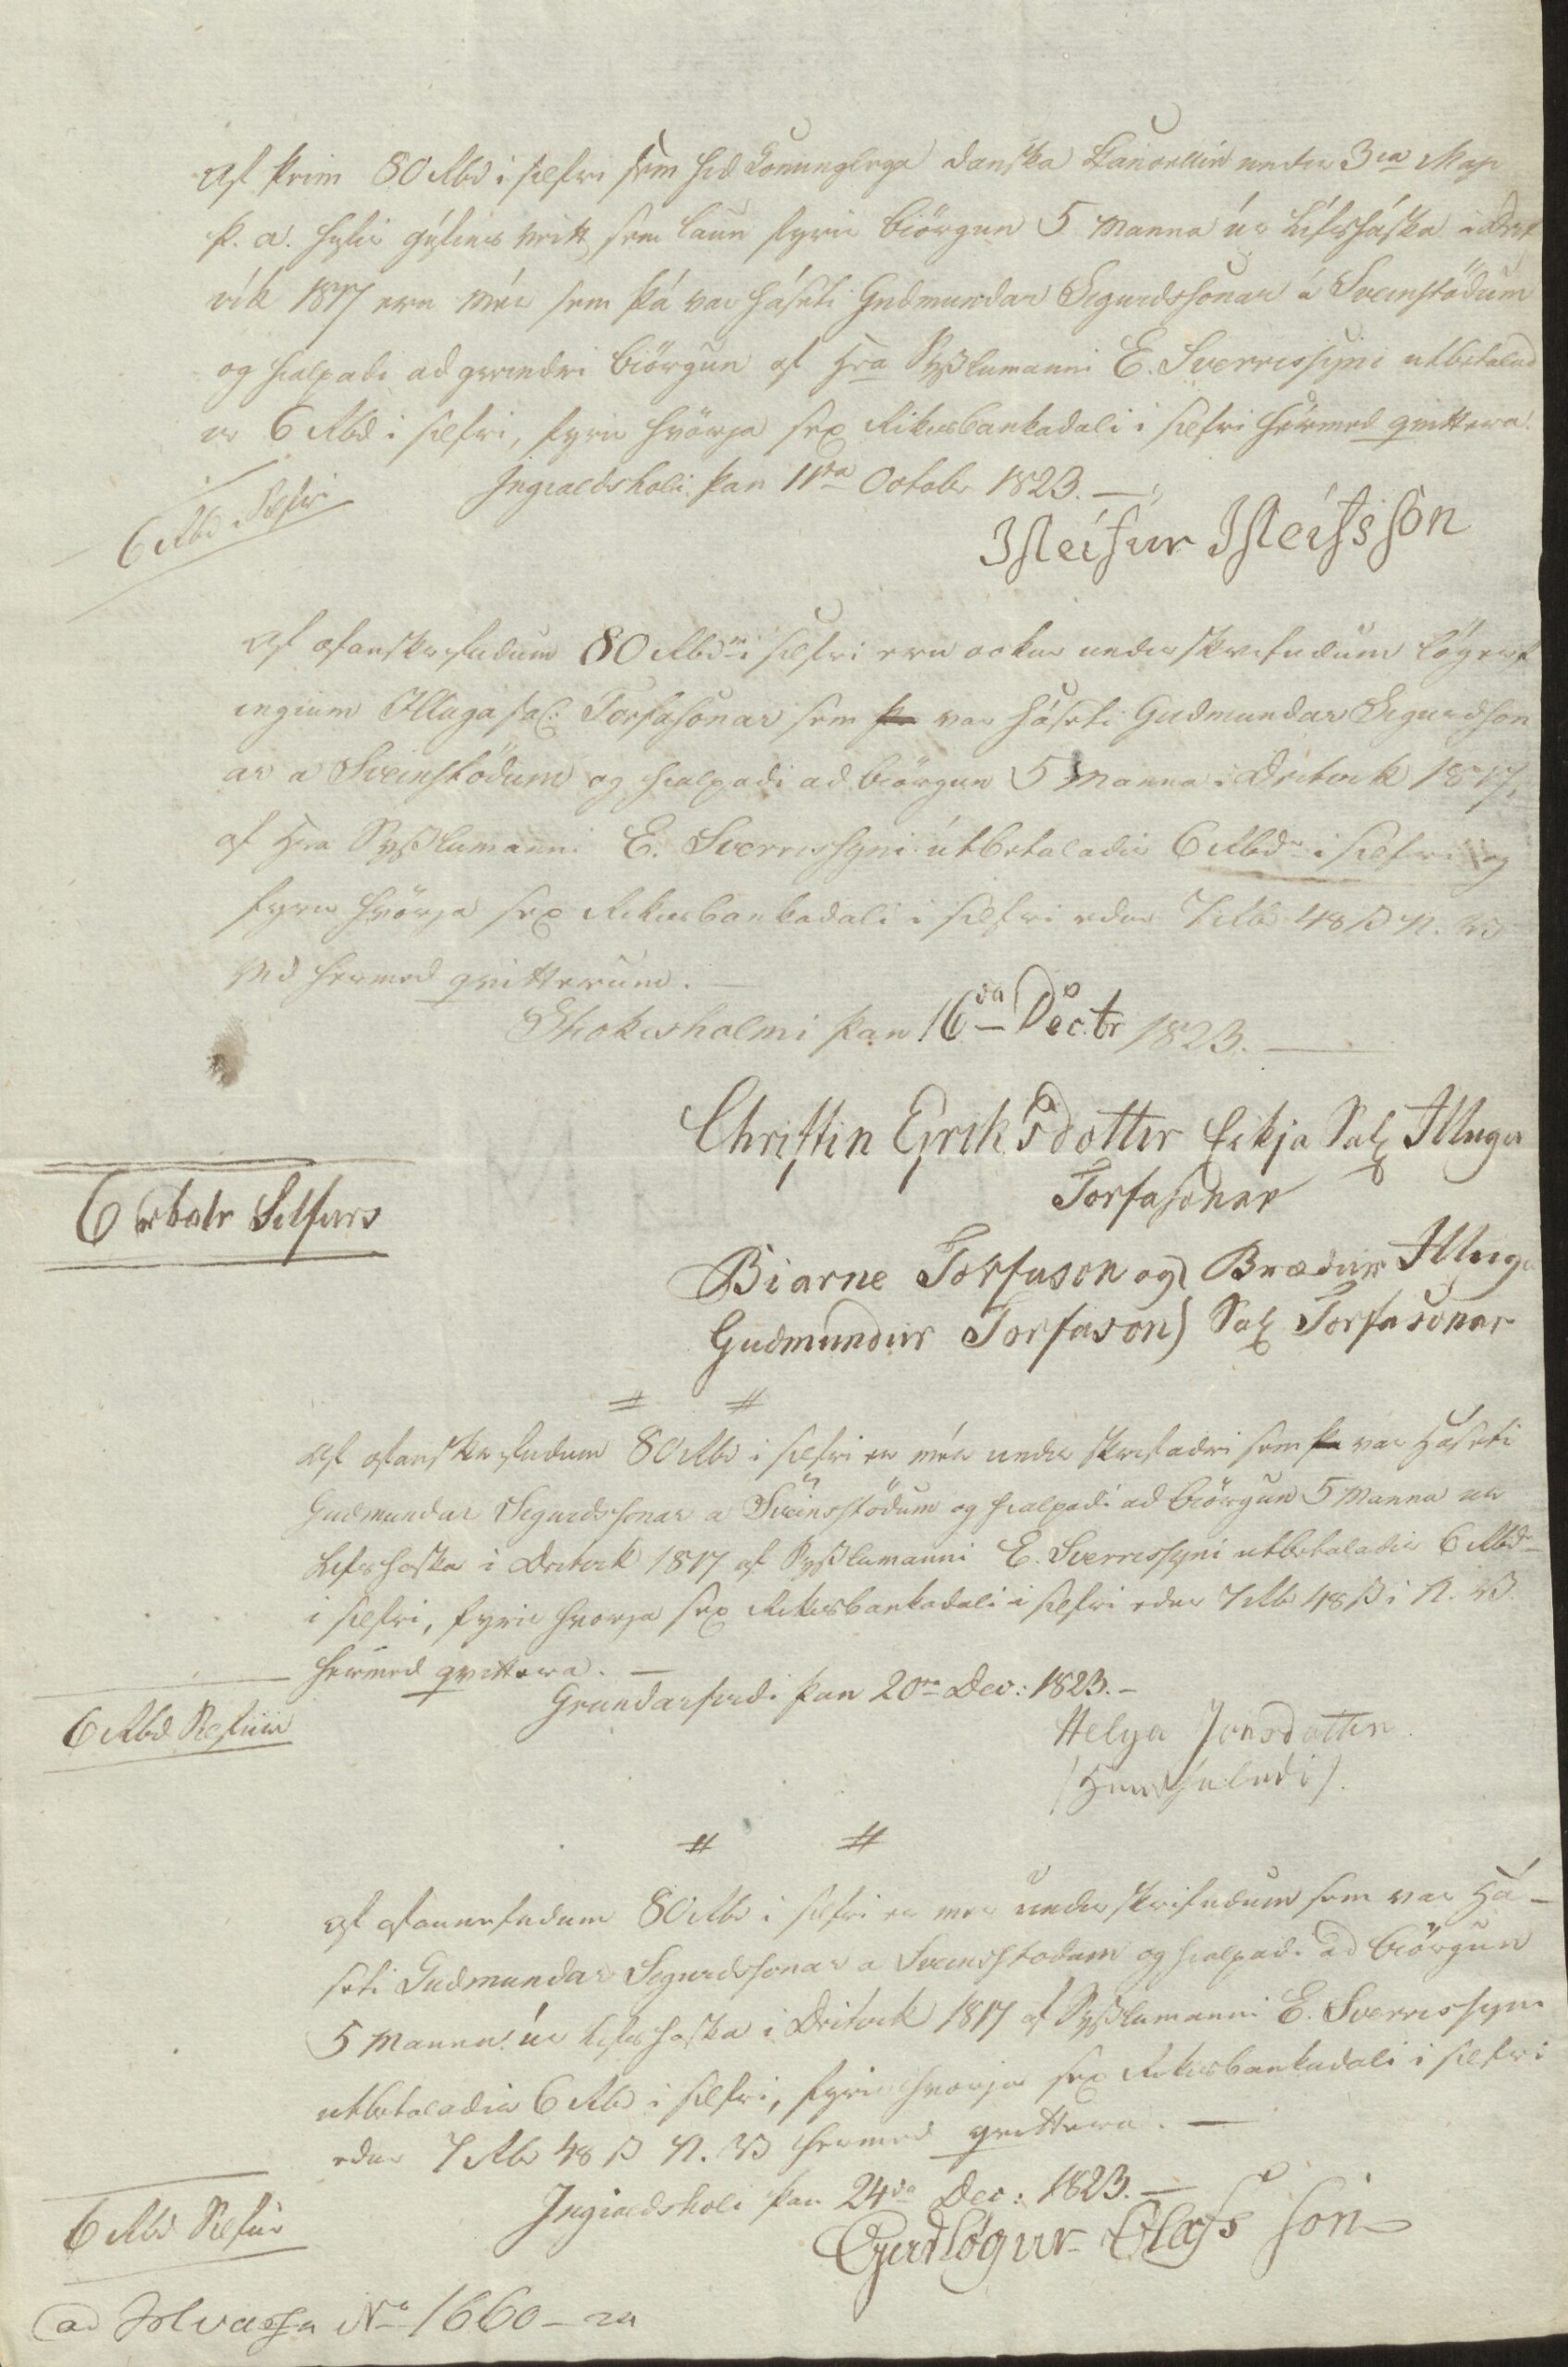 Af þeim 80 Rbd i silfri sem hid Konunglega danska Cancellíe under 3ia Maji
þ. a. hefir gefins veitt sem laun fyrir biörgun 5 Manna úr Lífsháska i Drit
vík 1817 eru mér sem þá var háseti Gudmundar Sigurdssonar á Sveinstödum
og hialpadi ad greindri biörgun af Hra Sysslumanni E. Sverrissyni utbetalad
er 6 Rbd i silfri, fyrir hvörja sex Rikisbankadali i silfri hérmed qvittera.
Ingialdshóli þan 11ta Octobr 1823.
6 Rbd Silfr
Isleifur Isleifsson
Af ofanskrifudum 80 Rbdm i silfri eru ockur underskrifudum lögerf
ingium Illuga sal: Torfasonar sem var háseti Gudmundar Sigurdson
ar a Sveinstödum og hialpadi ad biörgun 5 Manna i Dritvik 1817,
af Hra Sysslumanni E. Sverrissyni útbetaladir 6 Rbdr i silfri og
fyrir hvörja sex Rikisbankadali i silfri edur 7 Rbd 48 s N. V
vid hermed qvitterum.
Stickisholmi þan 16da Dectr 1823.
Christin Eyriksdotter Eckja Sal Illuga
Torfasonar
6 rbdlr Silfurs
Biarne Torfason og) Brædur Illuga
Gudmundur Torfason) Sal Torfasonar
# #
Af ofanskrifudum 80 Rbd i silfri er mér under skrifadri sem var Háseti
Gudmundar Sigurdssonar a Sveinsstödum og hialpadi ad biörgun 5 Manna ur
Lifshaska i Dritvik 1817 af Sysslumanni E. Sverrissyni utbetaladir 6 Rbdr
i silfri, fyrir hvorja sex Rikisbankadali i silfri edur 7 Rbd 48 s i N. V.
hermed qvittera.
Grundarfirdi þan 20ta Dec: 1823.
6 Rbd Silfur
Helga Jonsdotter.
# #
Af ofannefndum 80 Rbd i silfri er mer underskrifudum sem var Há-
seti Gudmundar Sigurdssonar a Sveinsstodum og hialpadi ad biörgun
5 Manna úr Lifshaska i Dritvik 1817 af Sysslumanni E. Sverrissyni
utbetaladir 6 Rbd i silfri, fyrir hvorja sex Rikisbankadali i silfri
edur 7 Rbd 48 s N. V hermed qvittera.
Ingialdshóli þan 24da Dec: 1823.
6 Rbd Silfur
Gudlögur Olafs son
ad No 1660